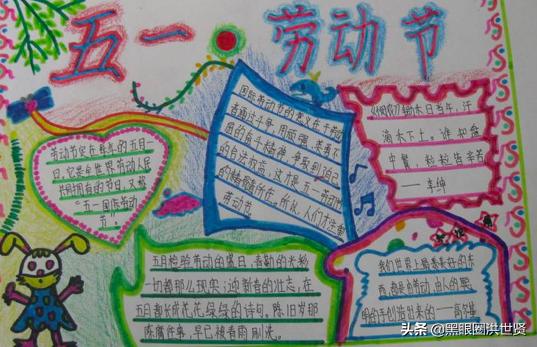 五一劳动节
劳动节定在每年的五月一
日。它是全世界劳动人民
共同拥有的节日，又称
“五一国际劳动
节”。
国际劳动节的意义在于劳动
者通过斗争，用顽强、英勇不
屈的奋斗精神，争取到自己
的合法权益，这才是五一劳动节
的精髓所在。所以，人们才注重
劳动节
《悯农》锄禾日当午，汗
滴禾下土。谁知盘
中餐，粒粒皆辛苦
——李绅
五月
劳动的盛日，
一切都那么现实，迎新春的壮志，在
五月都长成花花绿绿的诗句。陈旧岁
早已被春雨刷洗。
我们世界上最美好的东
西，都是由劳动、由人的聪
明的手创造出来的——高尔基
头条 @黑眼圈洪世贤